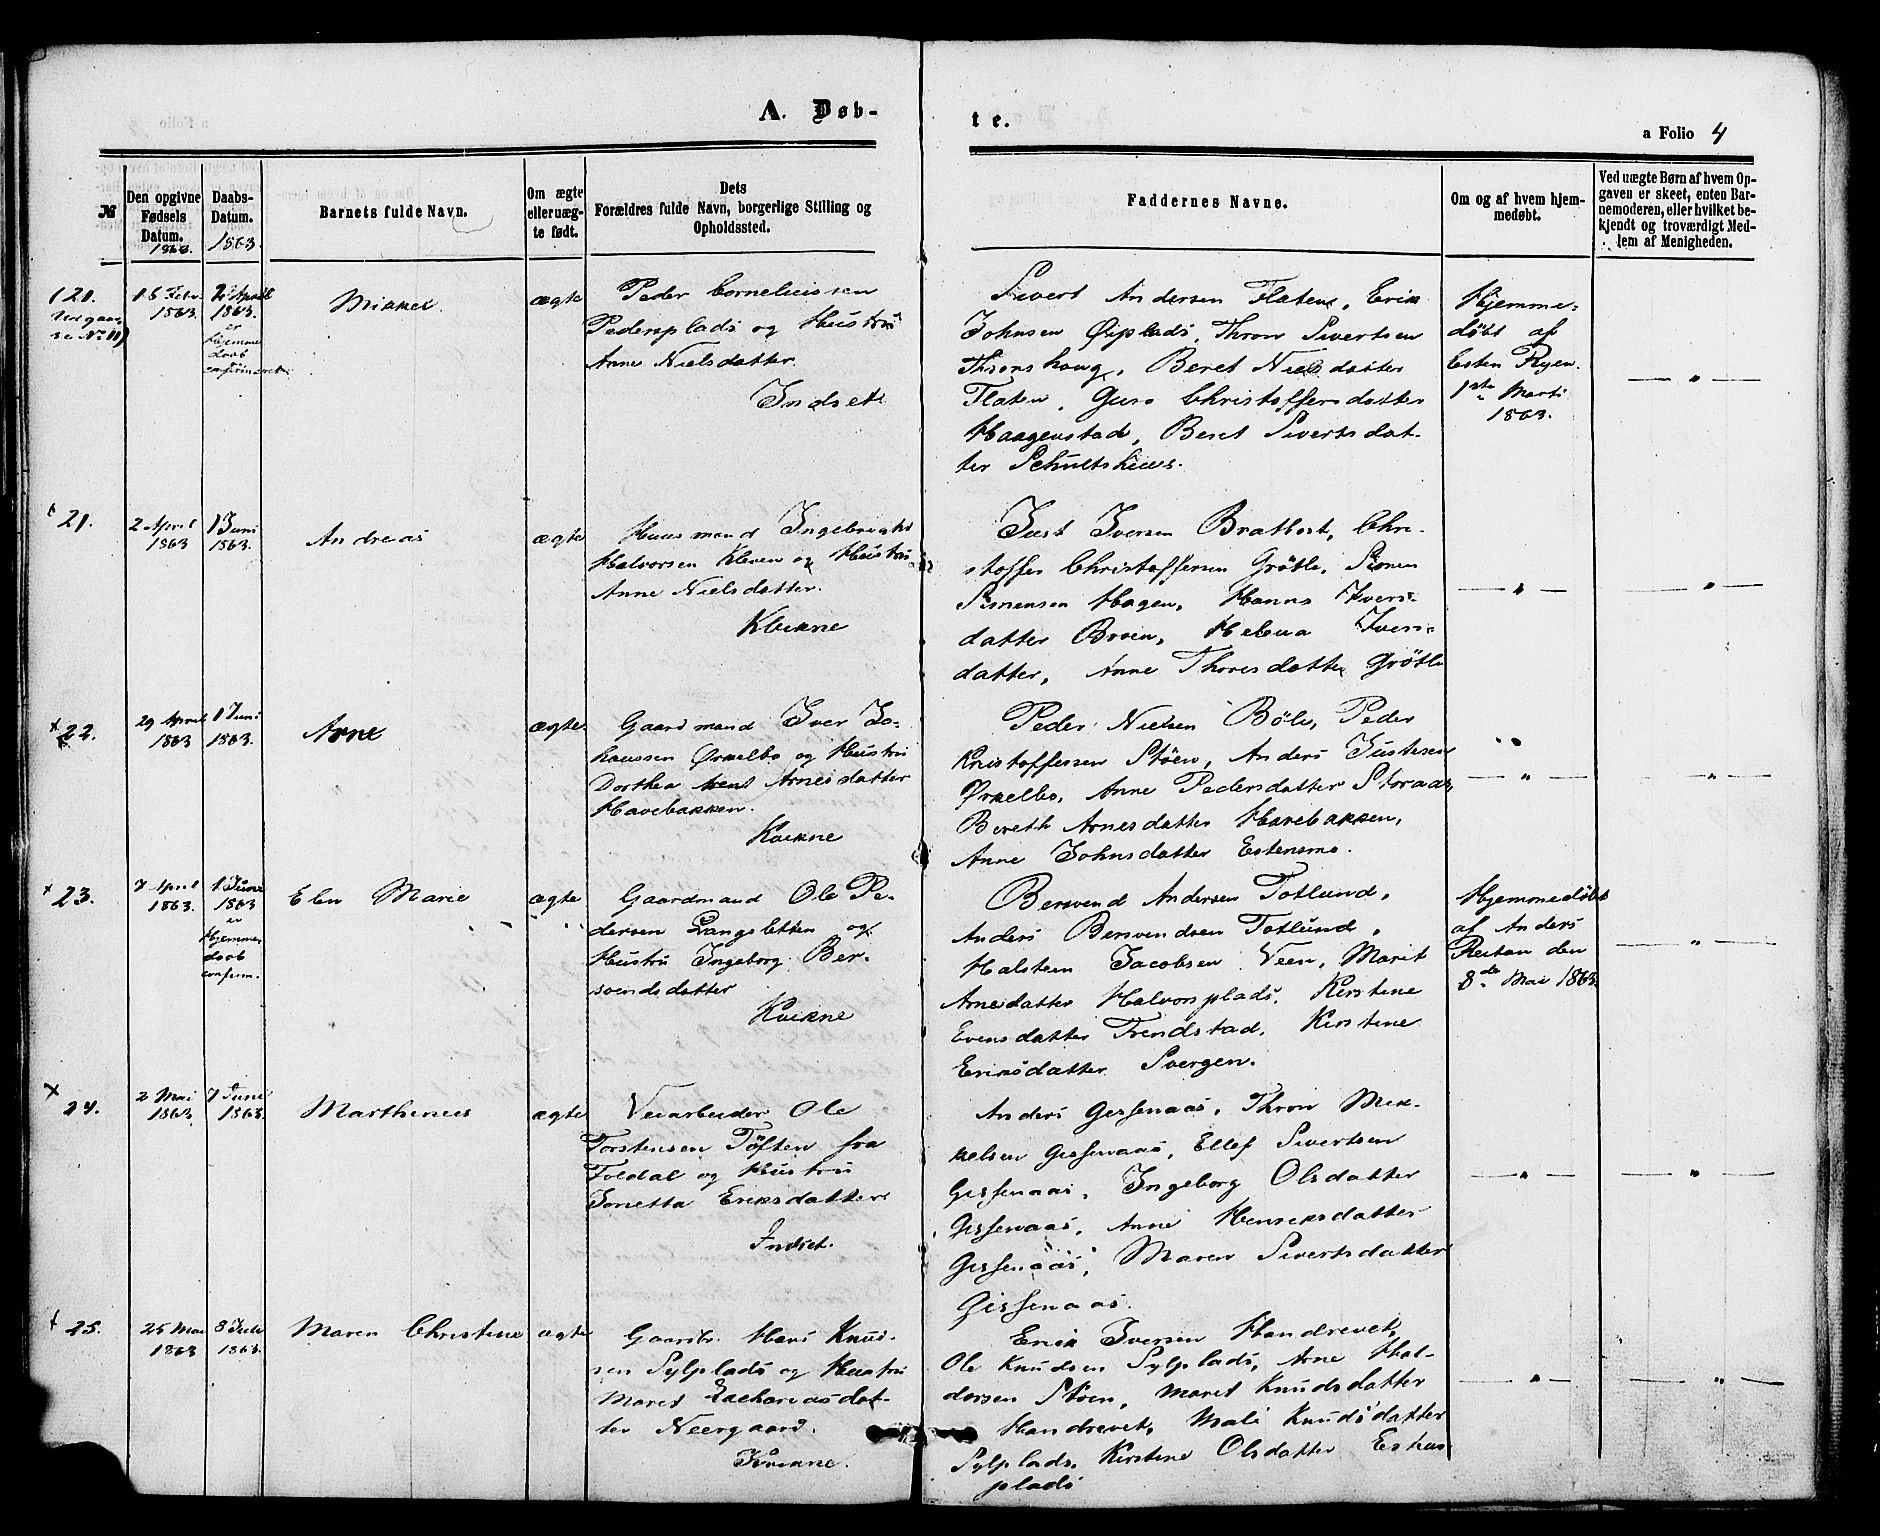 A. Døb-
te.
a Folio 4
№
Den opgivne Fødsels Datum. 1863.
Daabs-Datum. 1863.
Barnets fulde Navn.
Om ægte eller uæg-te født.
Dets Forældres fulde Navn, borgerlige Stilling og Opholdssted.
Faddernes Navne.
Om og af hvem hjem-medøbt.
Ved uægte Børn af hvem Op-gaven er skeet, enten Bar-nemoderen, eller hvilket be-kjendt og troværdigt Med-lem af Menigheden.
20.
15 Febr.
1863.
April
1863.
er
Hjemme
daab
confirmeret.
Mikkel.
ægte
Peder Corneliussen
Pedersplads og Hustru
Anne Nielsdatter.
Indset.
Sivert Andersen Flaten, Erik
Johnsen Øiplads, Thron Sivertsen
Thronshaug, Beret Nielsdatter
Flaten, Guro Christoffersdatter
Haagenstad, Beret Sivertsdat-
ter Schultshuus.
Hjemme-
døbt af
Esten Ryen.
1ste Marts
1863.
— " —
21.
2 April
1863
1 Juni
1863.
Andreas
ægte
Huusmand Ingebrigt
Halvorsen Kleven og Hustru
Anne Nielsdatter.
Kvikne
Just Iversen Bratbost, Chri-
stoffer Christoffersen Grötle, Simen
Simensen Hagen, Hanna Ivers-
datter Broen, Helena Ivers-
datter, Anne Thoresdatter Grötle
— " —
— " —
22.
29 April
1863
1 Juni
1863.
Arne
ægte.
Gaardmand Iver Jo-
hansen Ørkelbo og Hustru
Dorthea Arnesdatter
Havebakken.
Kvikne
Peder Nielsen Böle, Peder
Kristoffersen Stöen, Anders Justesen
Ørkelbo, Anne Pedersdatter Storaas,
Bereth Arnesdatter Havebakken,
Anne Johnsdatter Estensmo.
— " —
— " —
23.
7 April
1863.
1 Juni
1863
er
Hjemme
daab
confirm.
Elen Marie
ægte
Gaardmand Ole Pe-
dersen Langsletten og
Hustru Ingeborg Ber-
svendsdatter
Kvikne
Bersvend Andersen Totlund,
Anders Bersvendsen Totlund,
Halstein Jacobsen Veen, Marit
Arnesdatter Halvorsplads, Kirstine
Evensdatter Trondstad, Kirstine
Eriksdatter Svergen.
Hjemmedøbt
af Anders
Reitan den
8de Mai 1863.
— " —
24.
2 Mai
1863.
7 Juni
1863.
Marthinus
ægte
Veiarbeider Ole
Torstensen Töften fra
Foldal og Hustru
Jonetta Eriksdatter
Indset.
Anders Gissenaas, Thron Mik-
kelsen Gissenaas, Ellef Sivertsen
Gissenaas, Ingeborg Olsdatter
Gissenaas, Anne Henriksdatter
Gissenaas, Maren Sivertsdatter
Gissenaas.
— " —
— " —
25.
25 Mai
1863
1863.
Maren Christine
ægte
Gaardbr. Hans Knud-
sen Sylplads og Hustru
Maret Zachariasdat-
ter Neergaard.
Kvikne.
Erik Iversen Handrevet,
Ole Knudsen Sylplads, Arne Hal-
dorsen Stöen, Maret Knudsdatter
Handrevet, Mali Knudsdatter
Sylplads, Kirstine Olsdatter Esthus-
plads
— " —
— " —